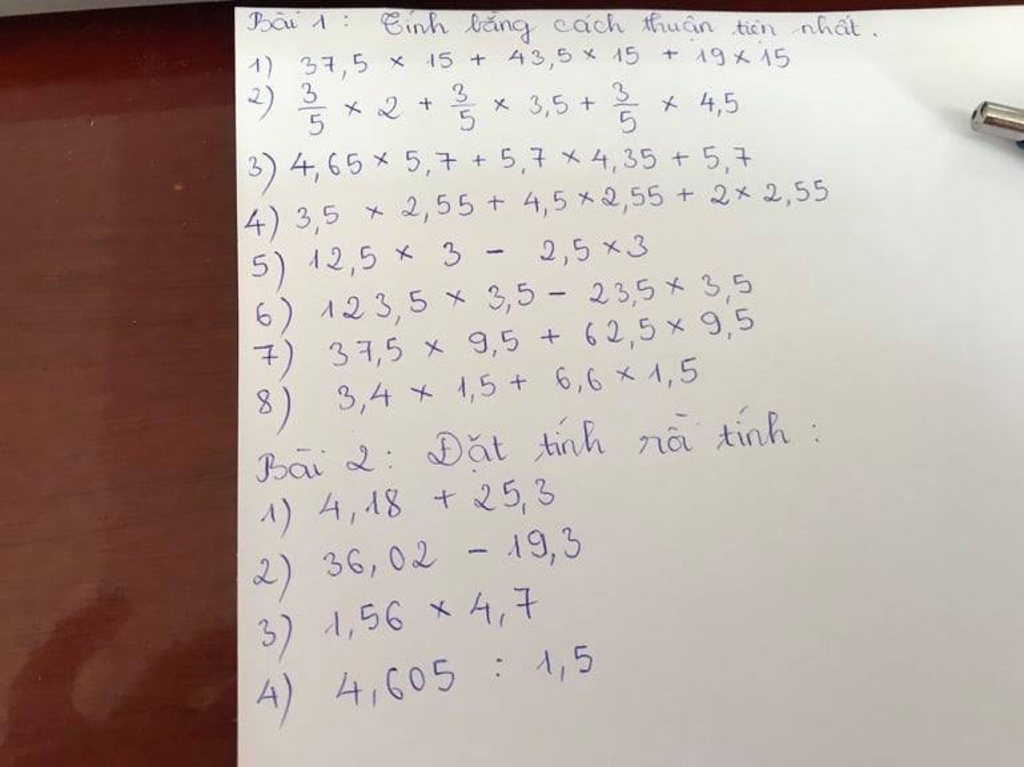 Bài 1 : Tính bằng cách thuận tiện nhất.
1) 37,5 × 15 + 43,5 × 15 + 19 × 15
2) 3/5 × 2 + 3/5 × 3,5 + 3/5 × 4,5
3) 4,65 × 5,7 + 5,7 × 4,35 + 5,7
4) 3,5 × 2,55 + 4,5 × 2,55 + 2 × 2,55
5) 12,5 × 3 - 2,5 × 3
6) 123,5 × 3,5 - 23,5 × 3,5
7) 37,5 × 9,5 + 62,5 × 9,5
8) 3,4 × 1,5 + 6,6 × 1,5
Bài 2 : Đặt tính rồi tính :
1) 4,18 + 25,3
2) 36,02 - 19,3
3) 1,56 × 4,7
4) 4,605 : 1,5